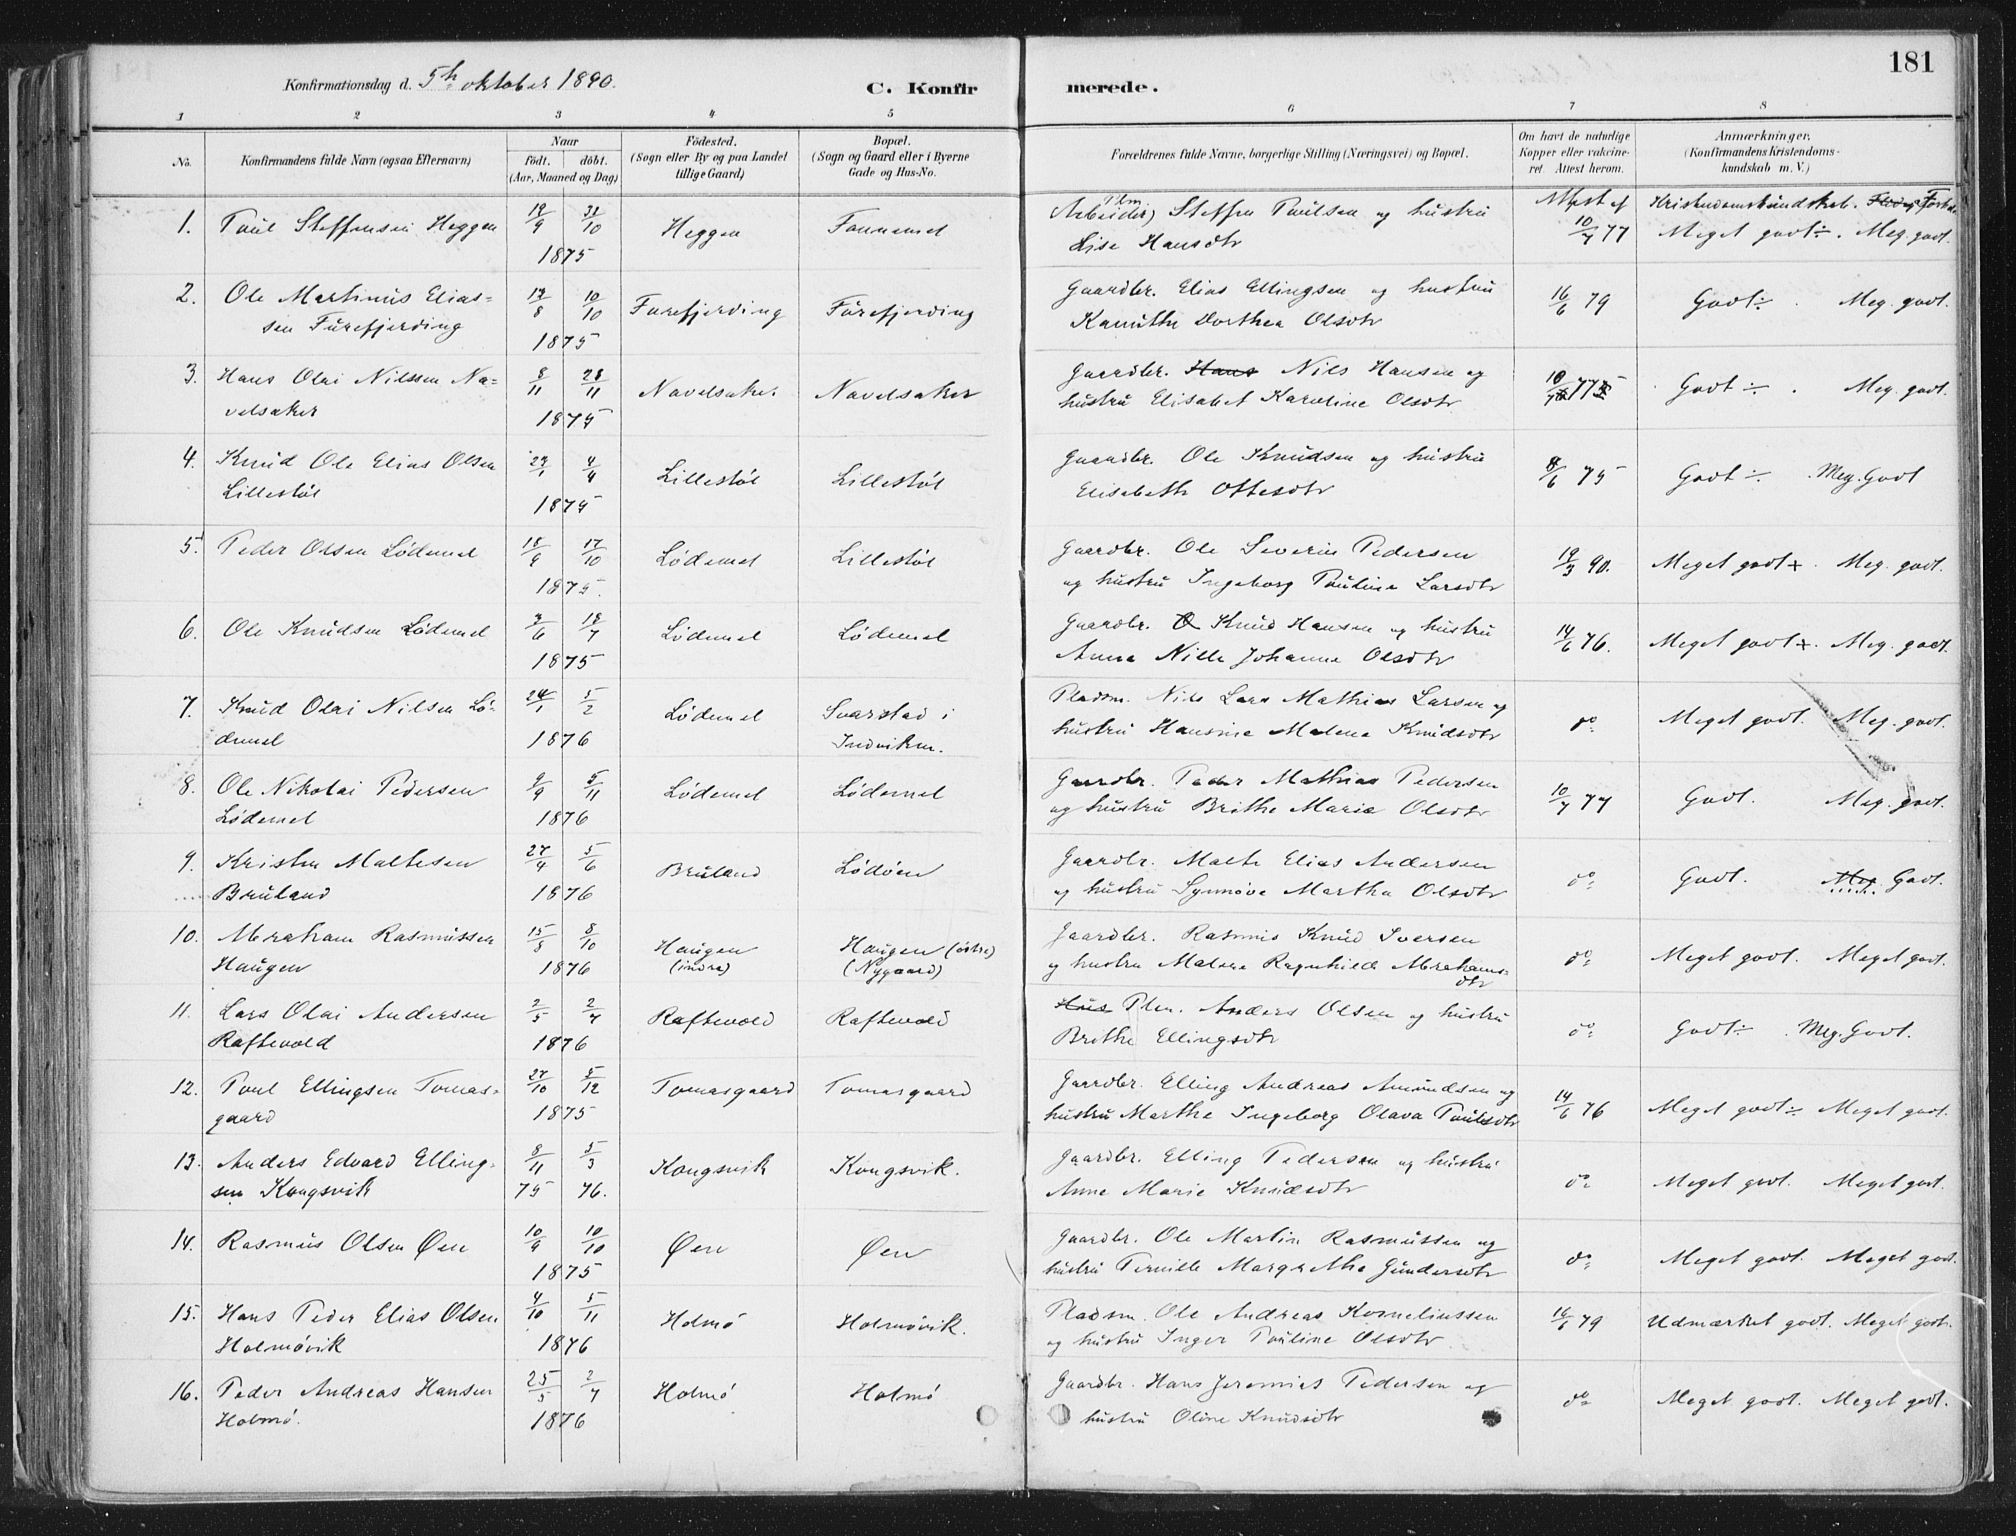 181
Konfirmationsdag d. 5h oktober 1890.
C. Konfirmerede.
1 2 3 4 5 6 7 8
No. Konfirmandens fulde Navn (ogsaa Efternavn) Naar født. døbt. (Aar, Maaned og Dag) Fødested. (Sogn eller By og paa Landet tillige Gaard) Bopæl. (Sogn og Gaard eller i Byerne Gade og Hus-No. Forældrenes fulde Navne, borgerlige Stilling (Næringsvei) og Bopæl. Om havt de naturlige Kopper eller vakcineret. Attest herom. Anmærkninger. (Konfirmandens Kristendomskundskab m. V.)
1. Poul Steffensen Heggen 19/9 31/10 1875 Heggen Fannemel
Arbeider) Plm Steffen Poulsen og hustru Attest af Kristendomskundskab.
Lise Hansdtr 10/7 77 Meget godt÷. Meg. godt.
2. Ole Martinus Elias= 10/10 Furefjerding Furefjerding Gaardbr. Elias Ellingsen og hustru 16/6 79 Godt÷. Meg. godt.
sen Furefjerding 1875 Dorthea Olsdtr
3. Hans Olai Nilssen Na= 8/11 28/11 Navelsaker Navelsaker Gaardbr. Hans Nils Hansen og Godt÷. Meg. godt.
velsaker 1875 hustru Elisabet Karoline Olsdtr
4. Knud Ole Elias Olsen 4/4 Lillestøl Lillestøl Gaardbr. Ole Knudsen og hustru 8/6 75 Godt÷. Meg. Godt
Lillestøl 1875 Elisabeth Ottesdtr
5. Peder Olsen Lødemel 18/9 17/10 Lødemel Lillestøl Gaardbr. Ole Severin Pedersen 19/3 90. Meget godt+. Meg. godt.
1875. og hustru Ingeborg Pauline Larsdtr
6. Ole Knudsen Lødemel 18/7 Lødemel Lødemel Gaardbr. O Knud Hansen og hustru 14/6 76. Meget godt+. Meg. godt.
1875 Anna Nille Johanne Olsdtr
7. Knud Olai Nilsen Lø- 24/1 5/2 Lødemel Svarstad i Pladsm. Nils Lars Mathias Larsen og do Meget godt. Meg. godt.
demel 1876 Indviken. hustru Hansine Malene Knudsdtr
8. Ole Nikolai Pedersen 9/9 5/11 Lødemel Lødemel Gaardbr. Peder Mathias Pedersen 10/7 77 Godt. Meg. godt.
Lødemel 1876 og hustru Brithe Marie Olsdtr
9. Kristen Maltesen 27/4 5/6 Bruland Lødøen Gaardbr. Malte Elias Andersen do Godt. Meg. Godt.
Bruland 1876 og hustru Synnøve Martha Olsdtr
10. Abraham Rasmussen 15/8 8/10 Haugen Haugen (østre) Gaardbr. Rasmus Knud Iversen do Meget godt. Meget godt.
Haugen 1876 (indre) (Nygaard) og hustru Malene Ragnhilde Abrahams=
dtr
11. Lars Olai Andersen 2/5 2/7 Raftevold Raftevold Hus Plm. Anders Olsen og hustru do Godt÷. Meg. Godt.
Raftevold 1876 Brithe Ellingsdtr
12. Poul Ellingsen Tomas= 27/10 5/12 Tomasgaard Tomasgaard Gaardbr. Elling Andreas Amundsen og 14/6 76 Meget godt÷ Meget godt.
gaard 1875 hustru Marthe Ingeborg Olava Poulsdtr
13. Anders Edvard Elling= 8/11 5/3 Kongsvik Kongsvik. Gaardbr. Elling Pedersen og hustru do Meget godt. Meget godt.
sen Kongsvik 75 76. Anne Marie Knudsdtr
14. Rasmus Olsen Øen 10/9 10/10 Øen Øen Gaardbr. Ole Martin Rasmussen og do Meget godt. Meget godt.
1875 hustru Pernille Margrethe Gundersdtr
15. Hans Peder Elias Olsen 4/10 5/11 Holmø Holmøvik. Pladsm. Ole Andreas Korneliussen 16/6 79 Udmærket godt. Meget godt.
Holmøvik 1876 og hustru Inger Pauline Olsdtr
16. Peder Andreas Hansen 25/5 2/7 Holmø Holmø Gaardbr. Hans Jeremias Pedersen og do Meget godt. Meget godt.
Holmø. 1876 hustru Oline Knudsdtr